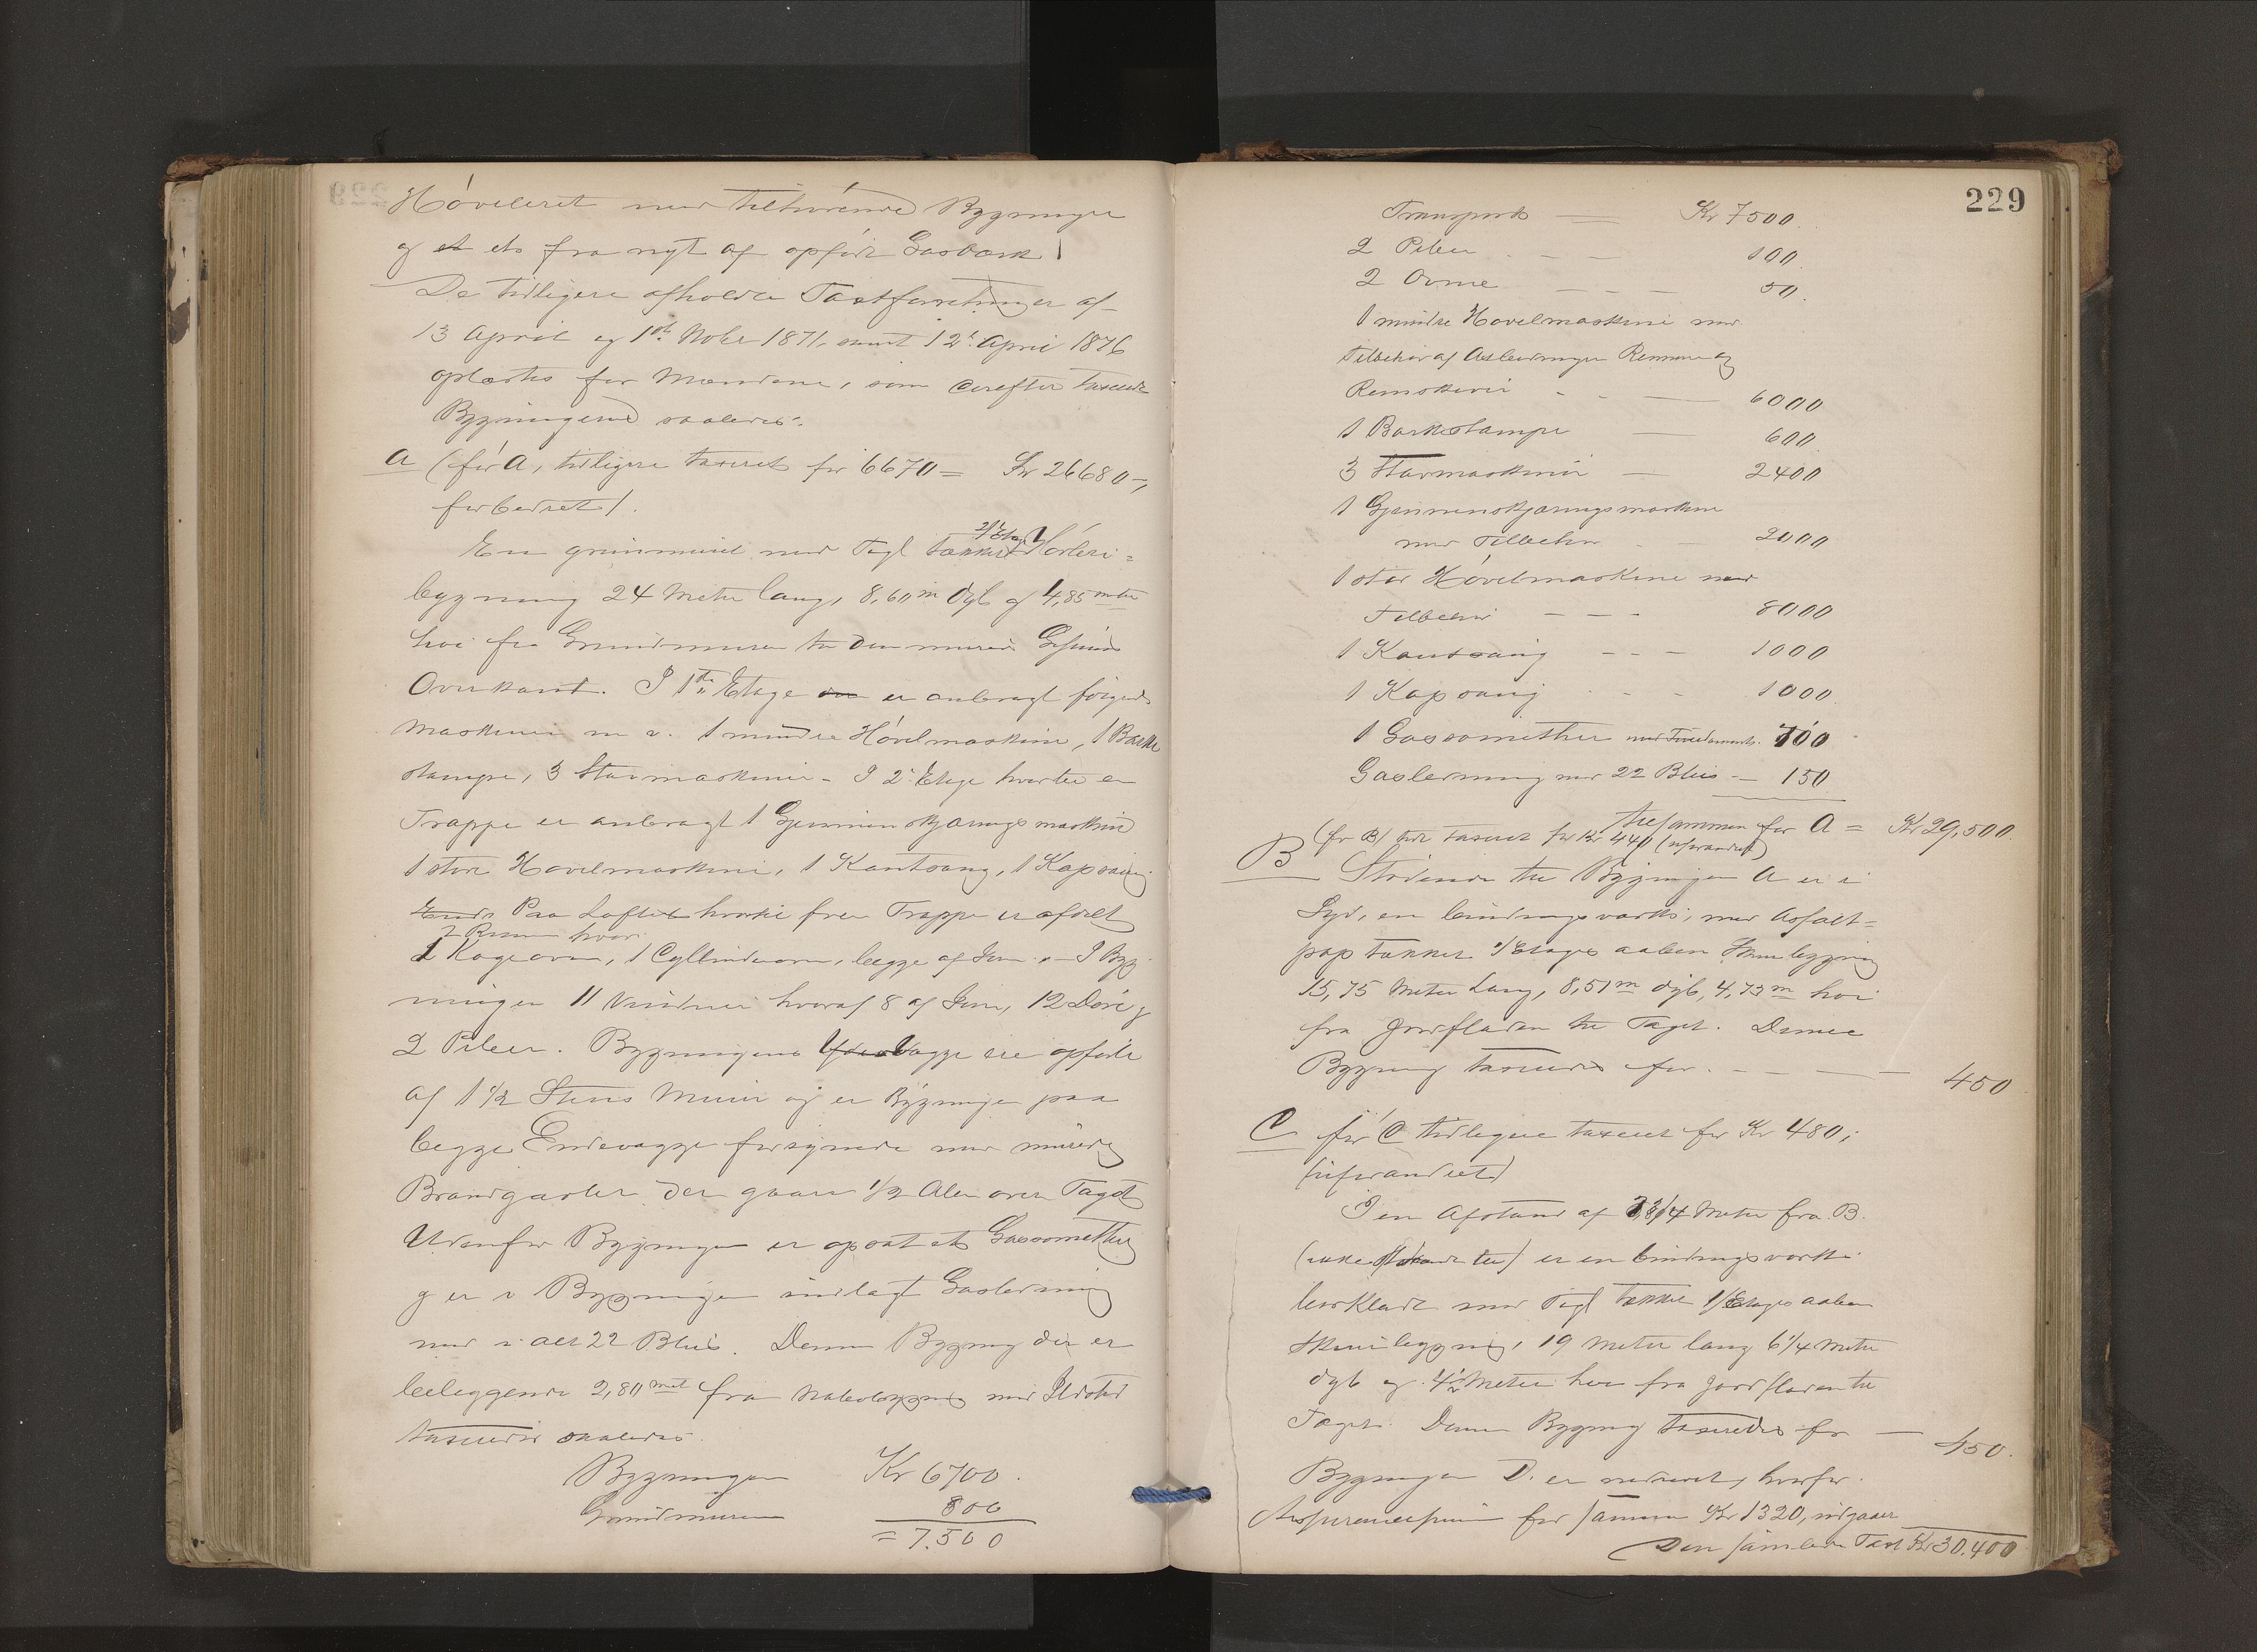 Høvleriet med tilhørende Bygninger
og et fra nyt af opført Gasværk
De tidligere afholdte Taxtforretninger af
13 April og 1ste Nobr 1871, samt 12te April 1876
oplæstes for Mændene, som derefter taxerede
Bygningerne saaledes:
A (før A, tidligere taxeret for 6670 = Kr 26680-,
forbedret).
En grundmuret med Tegl tækket 2 Etages Høvleri-
bygning 24 Meter lang, 8,60 m dyb og 4,85 meter
høi fra Grundmuren til den murede Gesims
Overkant. I 1ste Etage er anbragt følgende
Maskiner m. v. 1 mindre Høvelmaskine, 1 Barke
stampe, 3 Stavmaskiner - I 2. Etage hvortil en
Trappe er anbragt 1 Gjennemskjæringsmaskine
1 stor Høvelmaskine, 1 Kantsaug, 1 Kapsaug
Paa Loftet hvortil fører Trappe er afdelt
2 Rum hvor
1 Kogeovn, 1 Cyllinderovn, begge af Jern. - I Byg-
ningen 11 Vinduer hvoraf 8 af Jern, 12 Døre og
2 Piber. Bygningens Vægge ere opførte
af 1 1/2 Stens Muur og er Bygningen paa
begge Endevægge forsynede med murede
Brandgavler der gaaer 1/2 Alen over Taget
Udenfor Bygningen er opsat et Gassomether
og er i Bygningen indlagt Gasledning
med i alt 22 Blus. Denne Bygning der er
beliggende 2,80 met fra Nabobygning med Ildsted
taxeredes saaledes.
Bygningen Kr 6700.
Grundmuren 800
= 7.500
229
Transport — Kr 7500.
2 Piber - - - 100.
2 Ovne - - - 50.
1 mindre Høvelmaskine med
Tilbehør af Axledninger Remme og
Remskiver - - — 6000
1 Barkstampe — 600
3 Stavmaskiner — 2400
1 Gjennemskjæringsmaskine
med Tilbehør - - 2000
1 stor Høvelmaskine med
Tilbehør - - - 8000
1 Kantsaug - - - 1000
1 Kapsaug - - - 1000.
1 Gassomether med Fundament. 700
Gasledning med 22 Blus — 150.
tilsammen for A = Kr 29,500.
B (før B) tidl taxeret for Kr 440 (uforandret)
Stødende til Bygningen A er i
Syd, en bindingsværks, med Asfalt-
pap tækket 1 Etages aaben Skurbygning
15,75 Meter lang, 8,51 m dyb, 4,73 m høi
fra Jordfladen til Taget. Denne
Bygning taxeredes for - - - — 450
C før C tidligere taxeret for Kr 480;
(uforandret)
I en Afstand af 3/4 Meter fra B.
(ikke stødende til) er en bindingsværks
bordklædt med Tegl tækket 1 Etages aaben
Skurbygning, 19 Meter lang 6 1/4 Meter
dyb og 4 1/2 Meter høi fra Jordfladen til
Taget. Denne Bygning taxeredes for — 450.
Bygningen D. er nedrevet, hvorfor
Assurancesummen for samme Kr 1320, udgaaer
Den samlede Taxt Kr 30.400